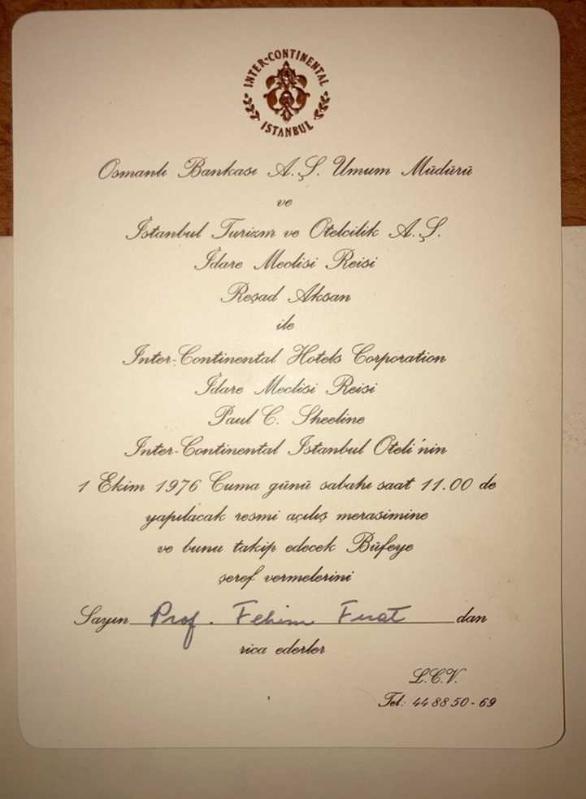 INTER-CONTINENTAL
ISTANBUL
Osmanlı Bankası A.Ş. Umum Müdürü
ve
İstanbul Turizm ve Otelcilik A.Ş.
İdare Meclisi Reisi
Reşad Aksan
ile
Inter-Continental Hotels Corporation
İdare Meclisi Reisi
Paul C. Sheeline
Inter-Continental İstanbul Oteli'nin
1 Ekim 1976 Cuma günü sabahı saat 11.00 de
yapılacak resmi açılış merasimine
ve bunu takip edecek Büfeye
şeref vermelerini
Sayın Prof. Fehim Fırat dan
rica ederler
L.C.V.
Tel: 44 88 50 - 69